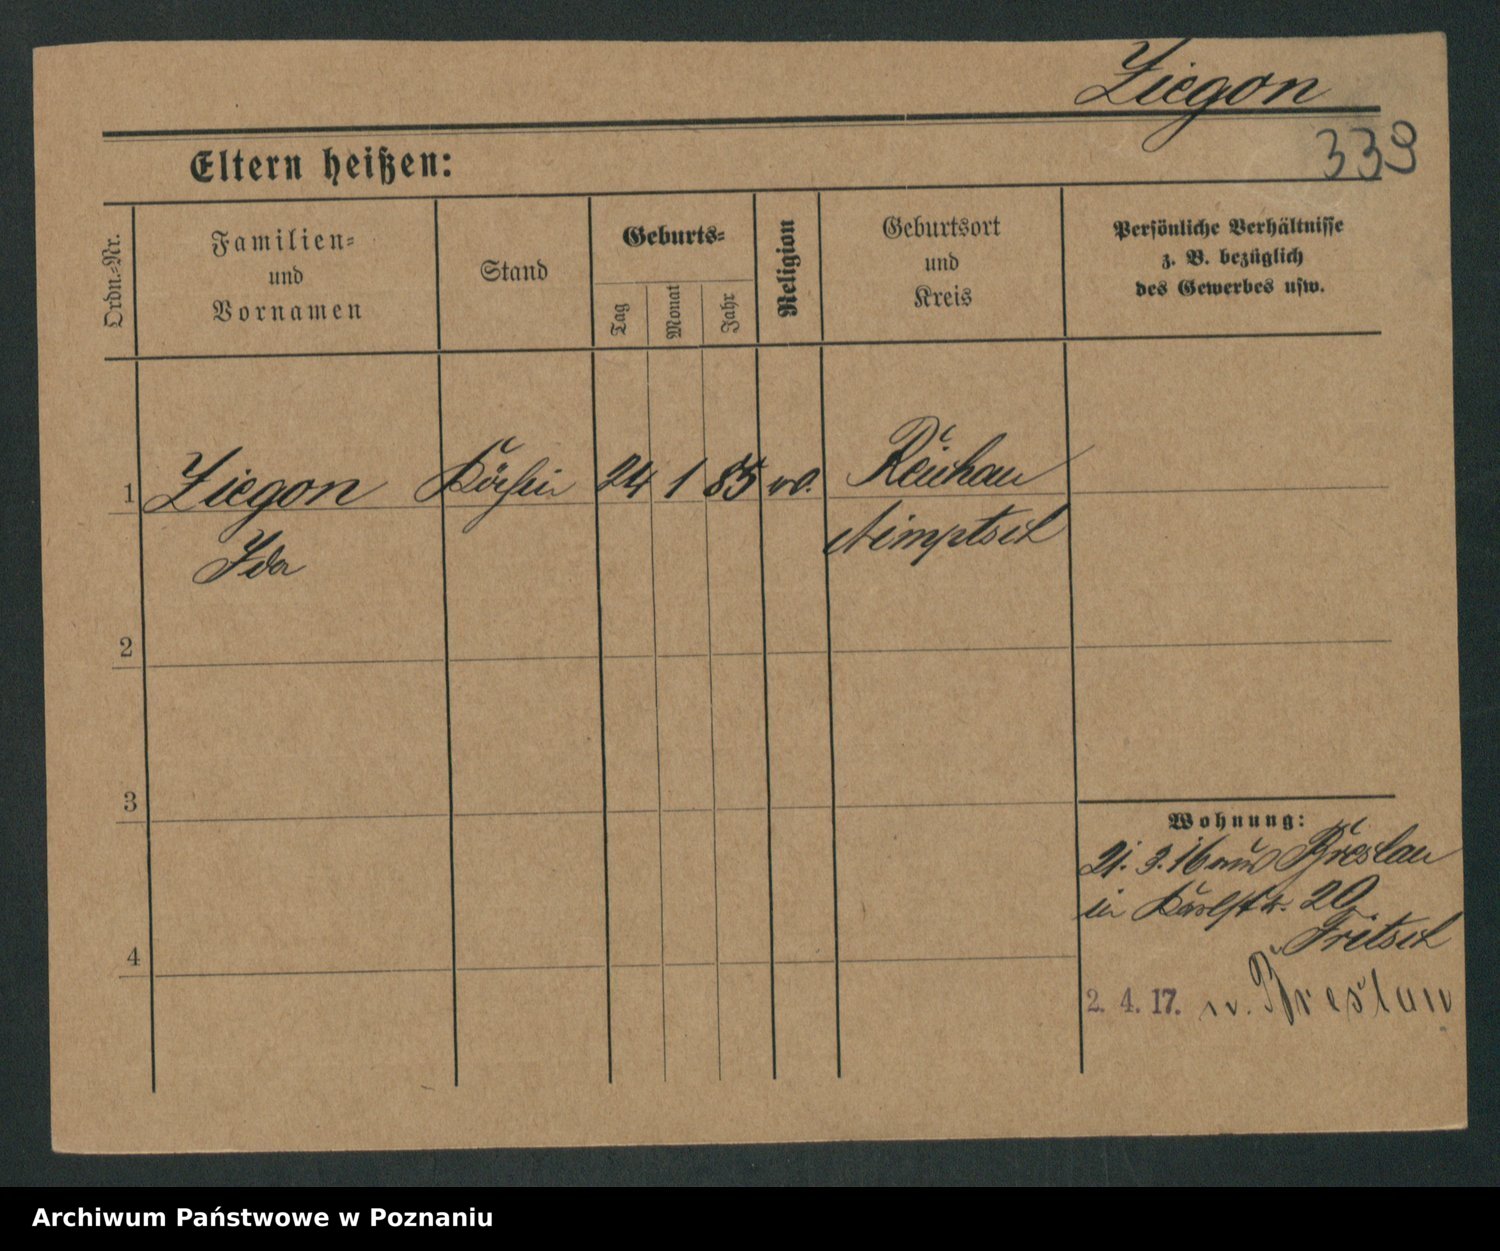 Ziegon
339
Eltern heißen:
Ordn.-Nr.
Familien-
und
Vornamen
Stand
Geburts-
Tag
Monat
Jahr
Religion
Geburtsort
und
Kreis
Persönliche Verhältnisse
z. B. bezüglich
des Gewerbes usw.
1
Ziegon
Ida
Köchin
24
1
85
Reichau
Nimptsch
2
3
4
Wohnung:
21. 3. 16 aus Breslau
in Karlstr. 20
Fritsch
2. 4. 17. n. Breslau
Archiwum Państwowe w Poznaniu